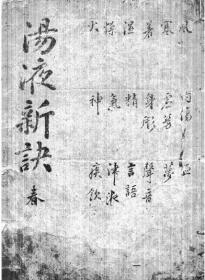 風 內傷
寒 虛勞 夢
暑 身形 聲音
湿 精 言語
燥 氣 津液
火 神 痰飲
湯液新訣 春